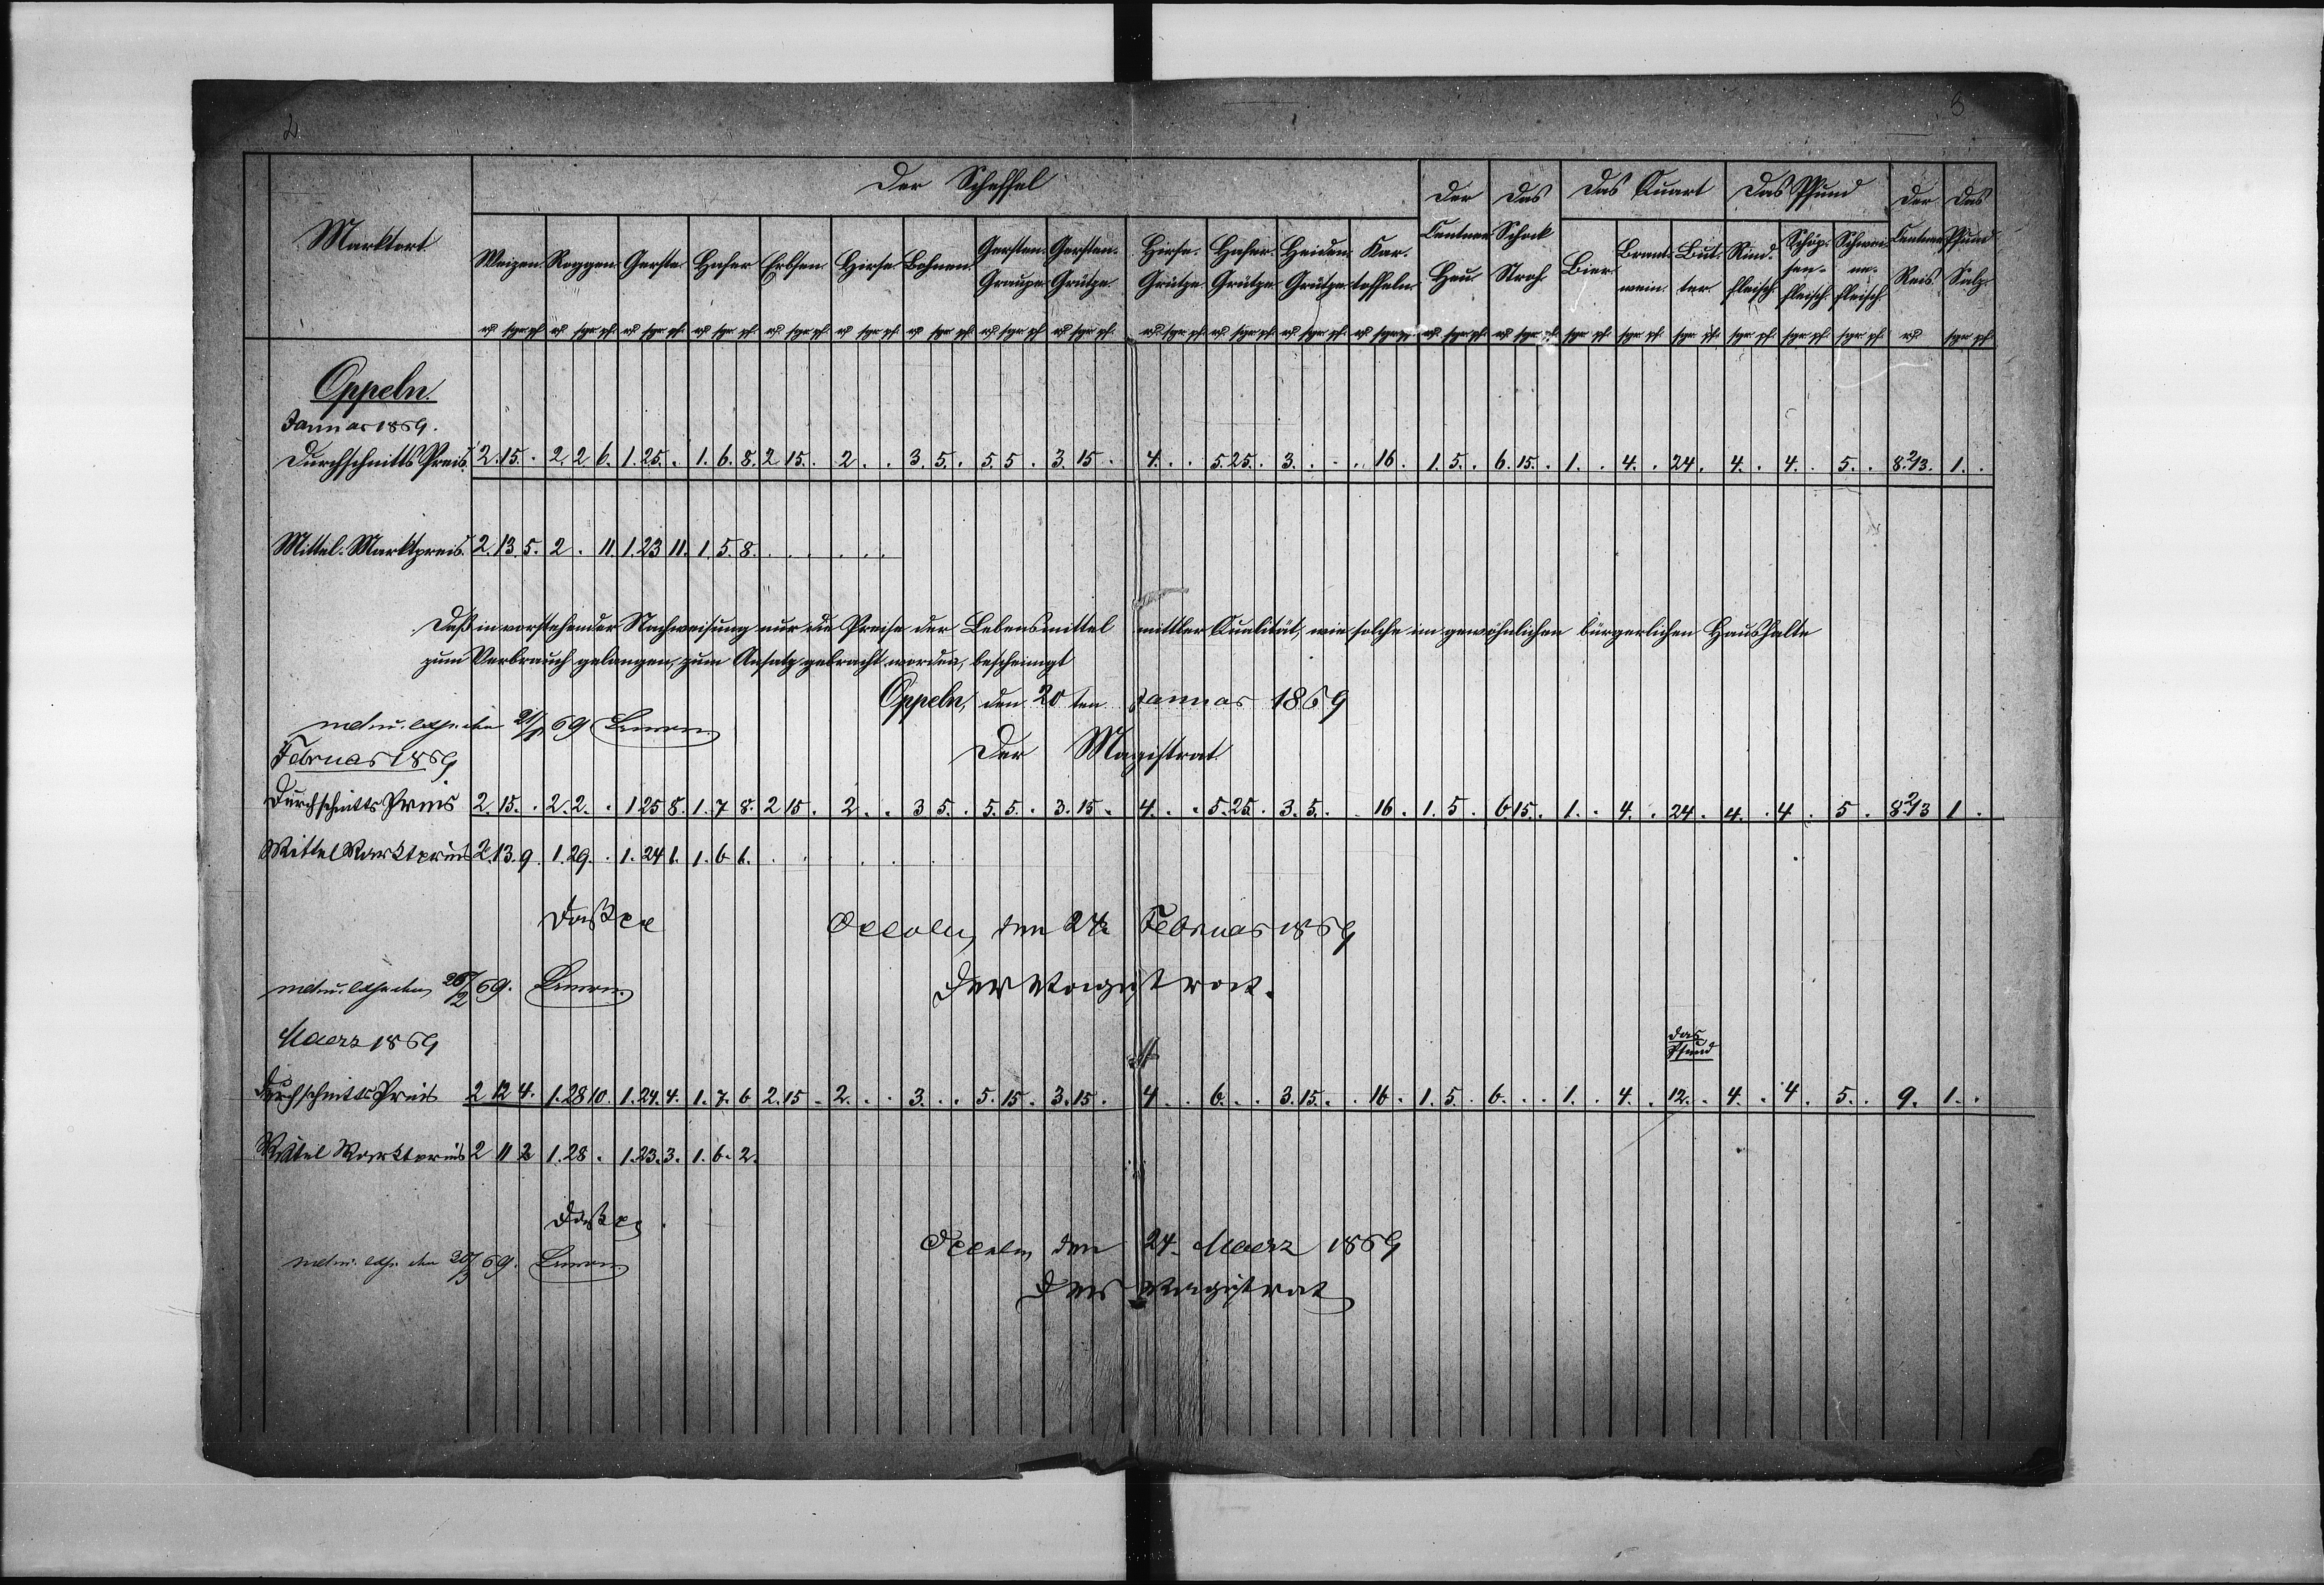 2
3
Marktort
Der Scheffel
Der Centner Heu
Das Schock Stroh
Das Quart
Das Pfund
Der Centner Reis
Das Pfund Salz
Weizen Roggen Gerste Hafer Erbsen Hirse Bohnen Gersten-Graupe Gersten-Grütze Hirse-Grütze Hafer-Grütze Heiden-Grütze Kar-toffeln
Bier Brannt-wein But-ter Rind-fleisch Schöp-sen-fleisch Schwei-ne-fleisch
Oppeln.
Januar 1869.
Durchschnitts Preis. 2. 15. . 2. 2 6. 1. 25. . 1. 6. 8. 2 15. . 2 . . 3. 5. . 5. 5 . 3. 15 . 4. . . 5. 25. . 3. . . . 16. . 1. 5. . 6. 15. . 1. . 4. . 24. . 4. . 4. . 5. . 8. 2/3. 1. .
Mittel-Marktpreis. 2. 13. 5. 2. . 11. 1. 23 11. 1. 5. 8. . . . . . .
Daß in vorstehender Nachweisung nur die Preise der Lebensmittel mittler Qualität, wie solche im gewöhnlichen bürgerlichen Haushalte
zum Verbrauch gelangen, zum Ansatz gebracht worden, bescheinigt
Oppeln, den 20 ten Januar 1869
mdu. exp. den 21/1 69
Der Magistrat
Februar 1869
Durchschnitts Preis 2. 15. . 2. 2. . 1 25 8. 1. 7 8. 2 15 . 2. . . 3 5. . 5. 5. . 3. 15 . 4. . . 5. 25. . 3. 5. . . 16 . 1. 5 . 6. 15. . 1. . 4. . 24. . 4. . 4 . 5 . 8. 2/3 1 .
Mittel Marktpreis 2. 13. 9. 1. 29. . 1. 24 1. 1. 6 1. . . . . .
Daß pp
Oppeln, den 24. Februar 1869
mdu. exp. den 26/2 69.
Der Magistrat.
Maerz 1869
das
Pfund
Durchschnitts Preis 2 12 4. 1. 28 10. 1. 24. 4. 1. 7. 6 2. 15 . 2. . . 3. . . 5. 15 . 3. 15 . 4 . . 6. . . 3. 15. . . 16 . 1. 5. . 6. . . 1. . 4. . 12. . 4. . 4 . 5. . 9. 1. .
Mittel Marktpreis 2 11 2 1. 28 . 1. 23. 3. 1. 6. 2.
Daß pp.
Oppeln, den 24. Maerz 1869
mdu. exp. den 69.
Der Magistrat